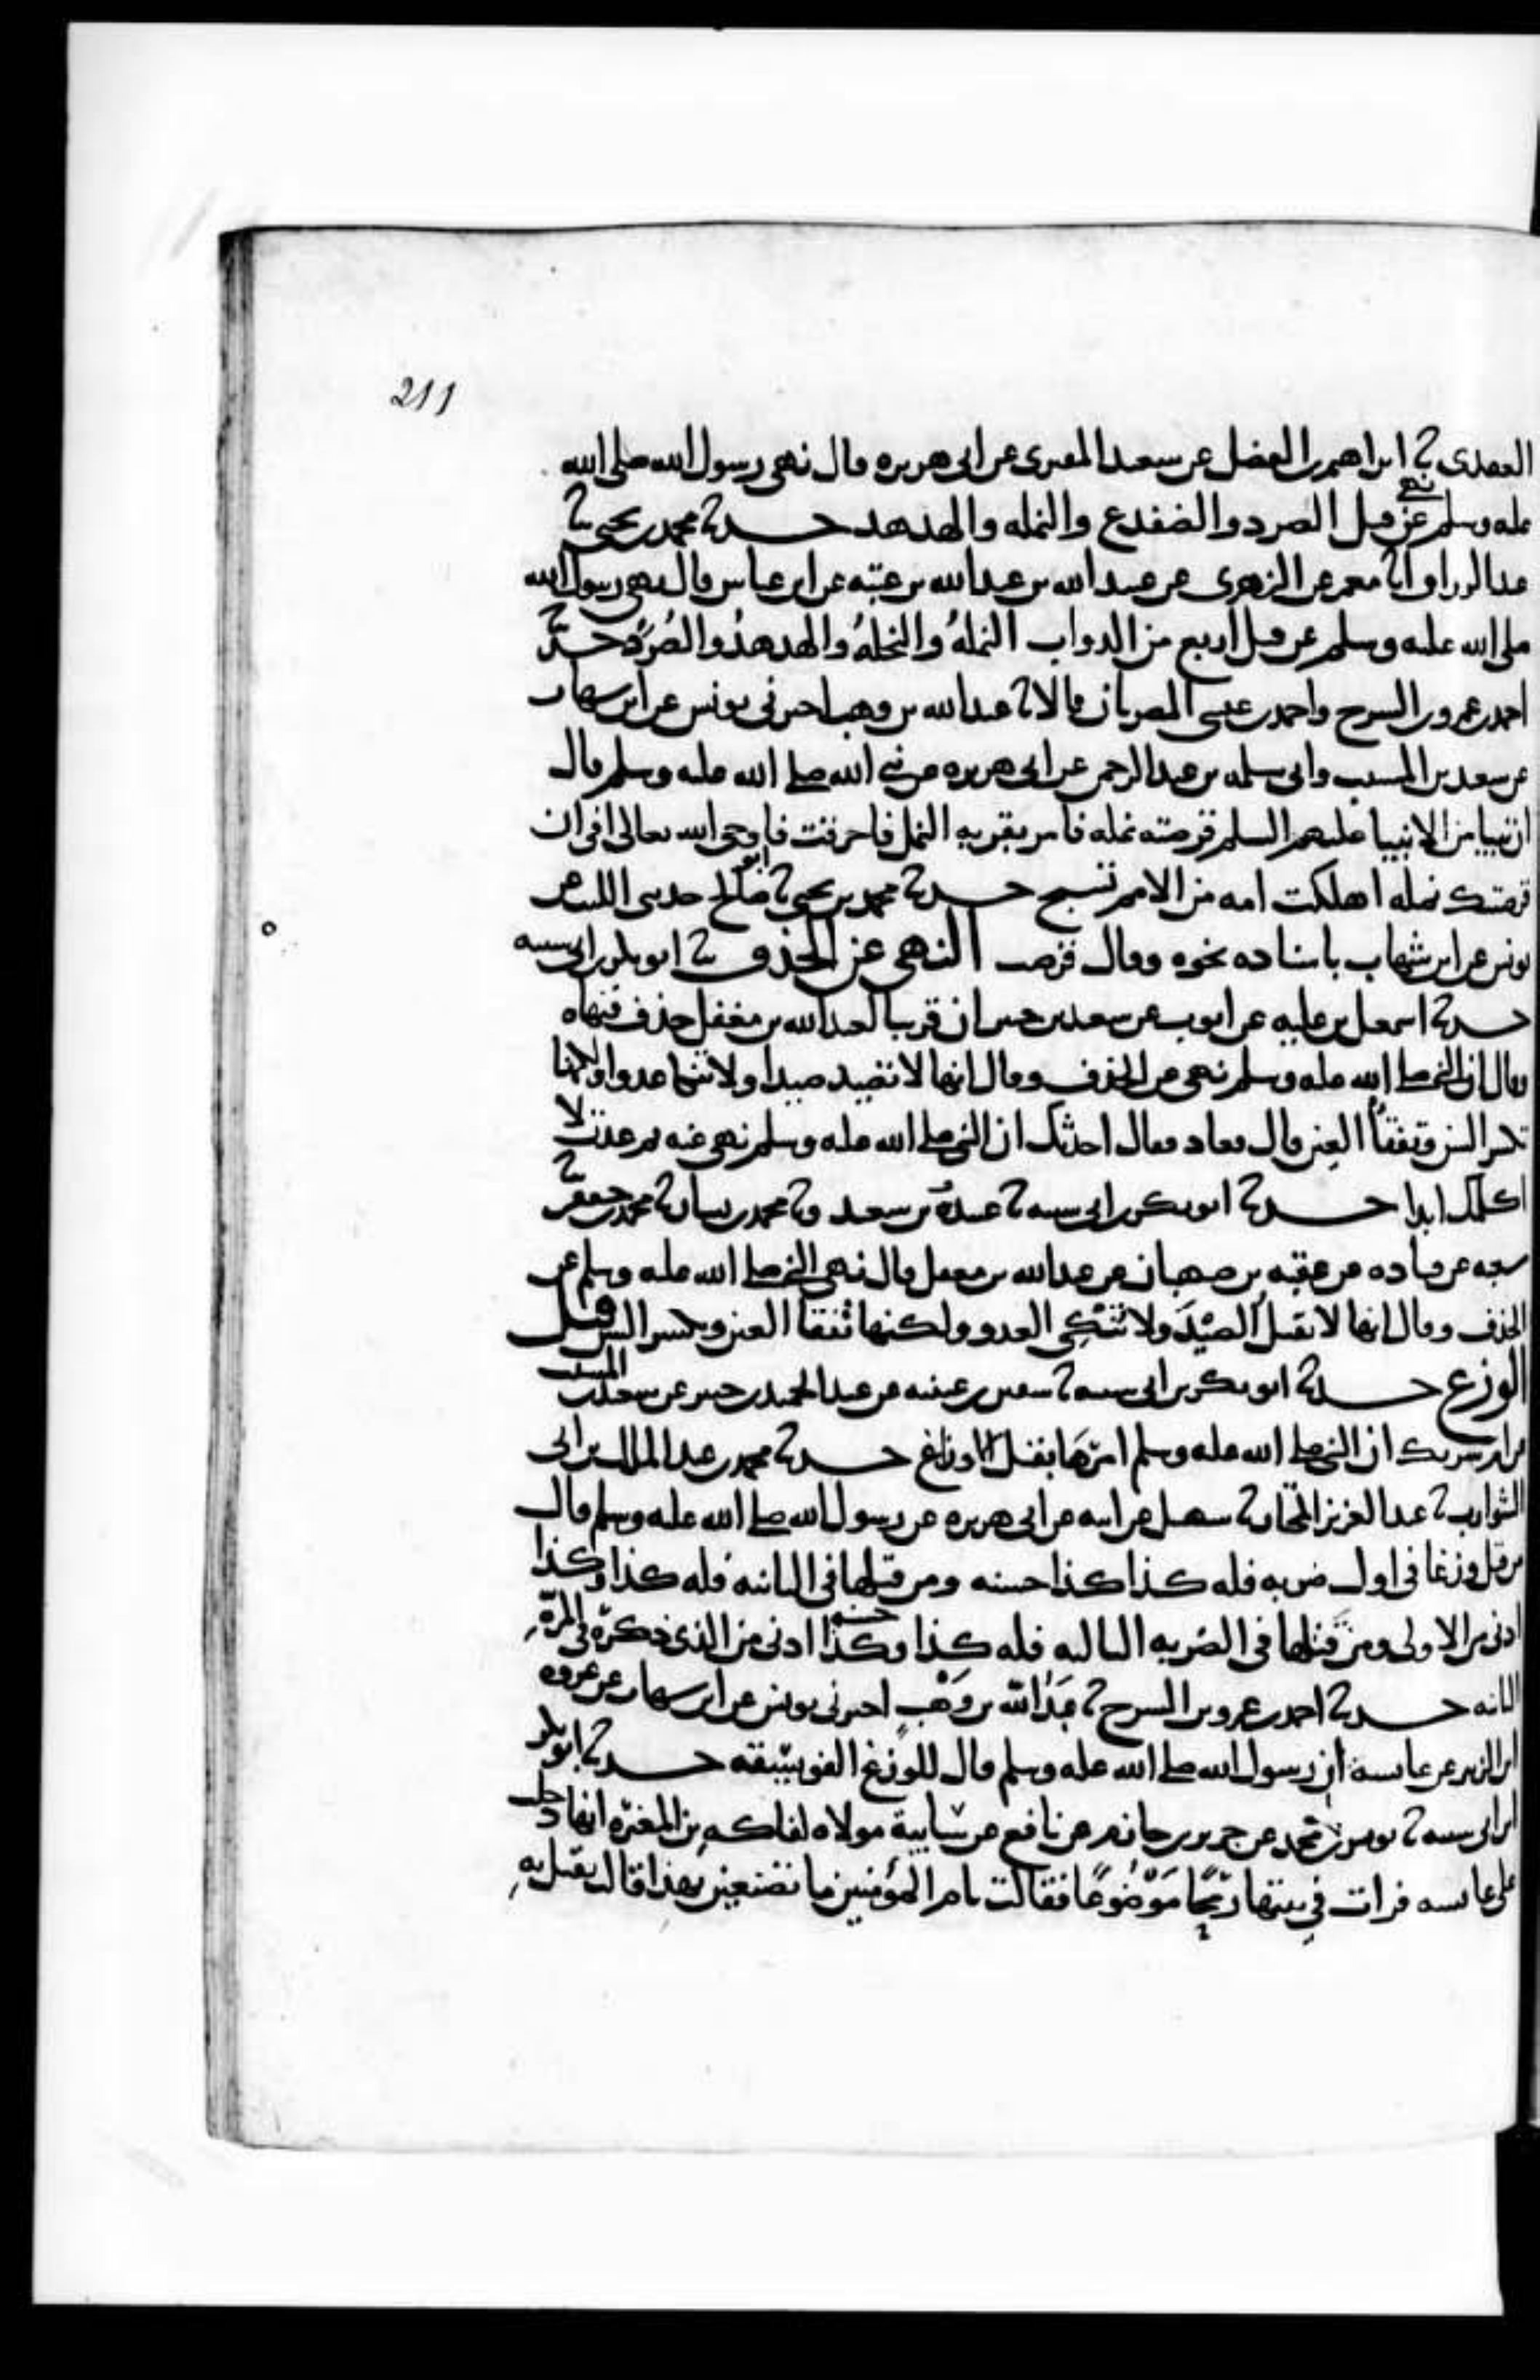 211
العقدى ثنا ابراهيم بن الفضل عن سعيد المقبرى عن ابى هريره قال نهى رسول الله صلى الله
عليه وسلم عن قتل الصرد والضفدع والنمله والهدهد حدثنا محمد بن يحيى ثنا
عبد الرزاق انا معمر عن الزهرى عن عبيد الله بن عبد الله بن عتبه عن ابن عباس قال نهى رسول الله
صلى الله عليه وسلم عن قتل اربع من الدواب النملهُ والنحلهُ والهدهدُ والصُرَدُ حدثنا
احمد بن عمرو بن السرح واحمد بن عيسى المصريان قالا ثنا عبد الله بن وهب اخبرنى يونس عن ابن شهاب
عن سعيد بن المسيب وابى سلمه بن عبد الرحمن عن ابى هريره عن نبي الله صلى الله عليه وسلم قال
ان نبيا من الانبيا عليهم السلم قرصته نمله فامر بقريه النمل فاحرقت فاوحى الله تعالى افى ان
قرصتك نمله اهلكت امه من الامم تسبح حدثنا محمد بن يحيى ثنا ابو صالح حدثنى الليث عن
يونس عن ابن شهاب باسناده نحوه وقال قرصت النهى عن الخذف ثنا ابو بكر بن ابى شيبه
حدثنا اسمعيل بن عليه عن ايوب عن سعيد بن جبير ان قريبا لعبد الله بن مغفل خذف فنهاه
وقال ان النبى صلى الله عليه وسلم نهى عن الخذف وقال انها لا تصيد صيدا ولا تنكا عدوا ولكنها
تكسر السن وتفقأ العين قال فعاد فقال احدثك ان النبى صلى الله عليه وسلم نهى عنه ثم عدت لا
اكلمك ابدا حدثنا ابو بكر بن ابى شيبه ثنا عبيد بن سعيد وثنا محمد بن بشار ثنا محمد بن جعفر ثنا
شعبه عن قتاده عن عقبه بن صهبان عن عبد الله بن مغفل قال نهى النبى صلى الله عليه وسلم عن
الخذف وقال انها لا تقتل الصيْدَ ولا تَنْكِي العدو ولكنها تفقا العين وتكسر السن قتل
الوزغ حدثنا ابو بكر بن ابى شيبه ثنا سفين بن عيينه عن عبد الحميد بن جبير عن سعيد بن المسيب
عن ام شريك ان النبى صلى الله عليه وسلم امرَهَا بقتل الاوزاغ حدثنا محمد بن عبد الملك بن ابى
الشوارب ثنا عبد العزيز المختار ثنا سهيل عن ابيه عن ابى هريره عن رسول الله صلى الله عليه وسلم قال
من قتل وزغا فى اول ضربه فله كذا كذا حسنه ومن قتلها فى الثانيه فله كذا وكذا
ادنى من الاولى ومن قتلها فى الضربه الثالثه فله كذا وكذا حسنه ادنى من الذى ذكره فى المرّهِ
الثانيه حدثنا احمد بن عمرو بن السرح ثنا عبدُ اللّه بن وَهْبٍ اخبرنى يونس عن ابن شهاب عن عروه
ابن الزبير عن عائشة ان رسول الله صلى الله عليه وسلم قال للوزغ الفويسقه حدثنا ابو بكر
ابن ابى شيبه ثنا يونس بن محمد عن جرير بن حازم عن نافع عن سَايبة مولاه لفاكه بن المغيره انها دخلت
على عائشه فرات في بيتها رمحًا مَوْضُوعًا فقالت يام المؤمنين ما تصنعين بهذا قالت نقتل بهِ